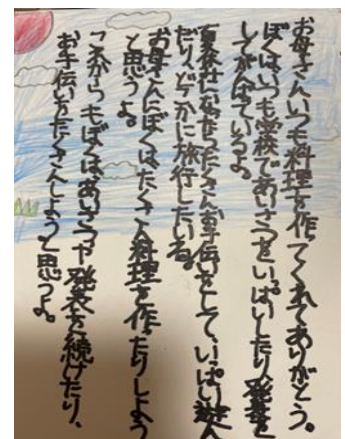 お母さんいつも料理を作ってくれてありがとう。
ぼくはいつも学校であいさつをいっぱいしたり発表を
してがんばているよ。
夏休みになったらたくさんお手伝いをして、いっぱい遊ん
だり、どこかに旅行したいな。
お母さんにぼくは、たくさん料理を作たりしよう
と思うよ。
これからもぼくは、あいさつや発表を続けたり、
お手伝いをたくさんしようと思うよ。